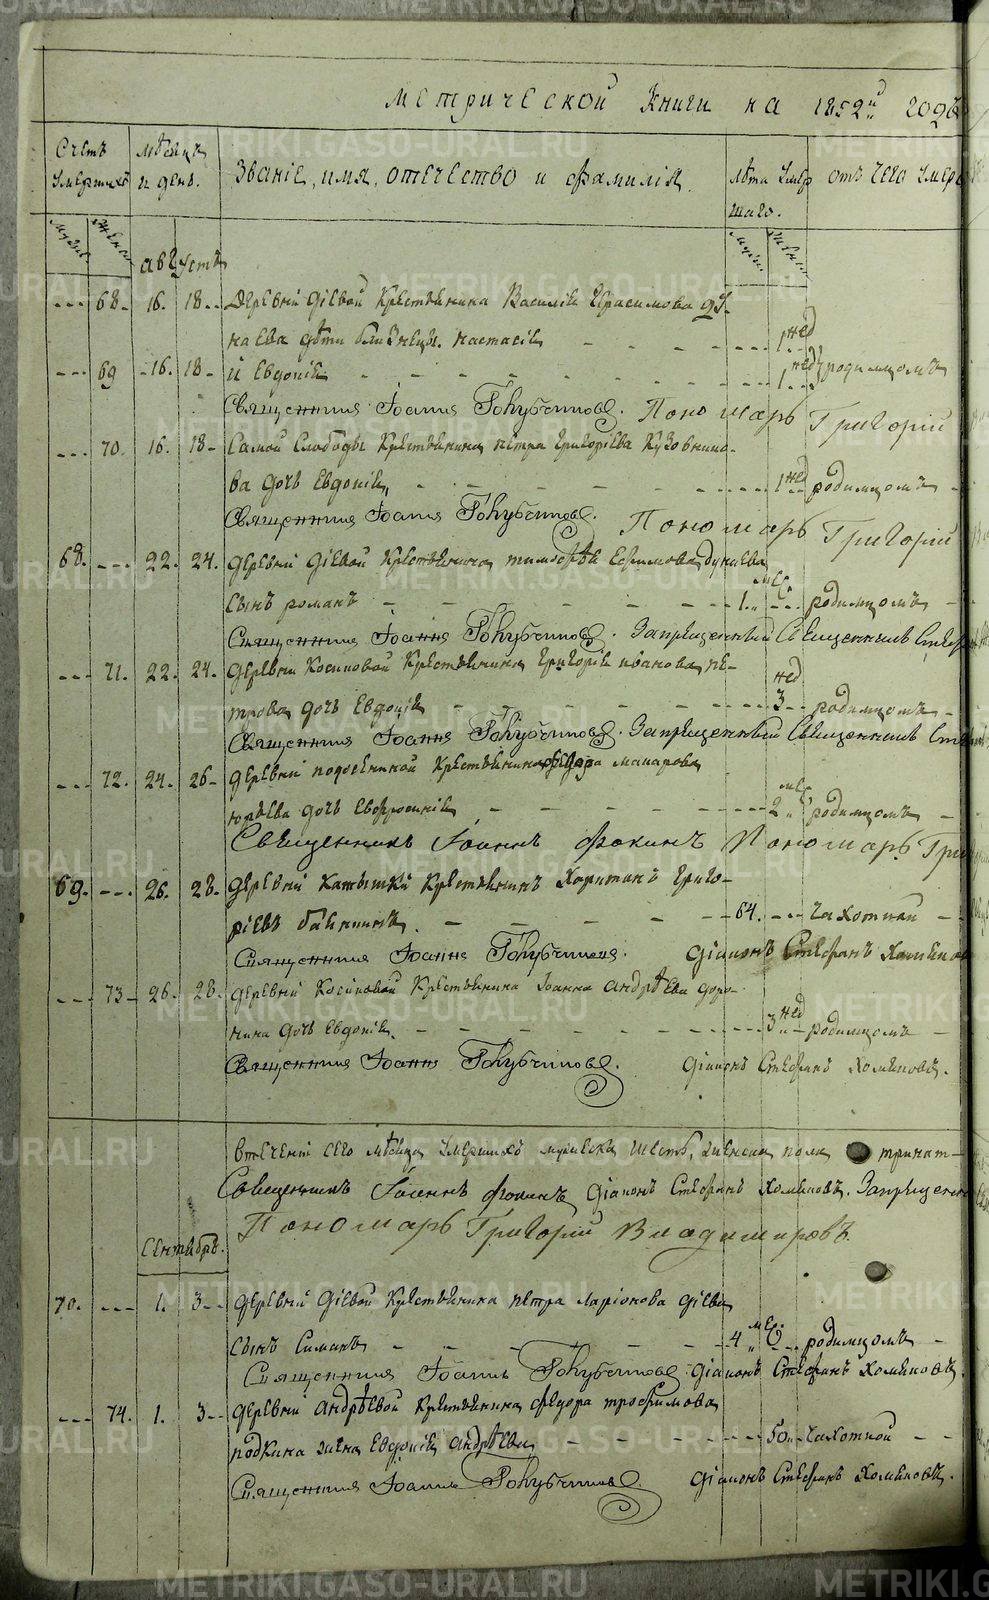 Метрической Книги на 1852й годъ
Счетъ умершихъ
Мѣсяцъ и день.
Званіе, имя, отечество и фамилія.
Лѣта умершаго.
отъ чего умеръ
Мужес Женск
Мужес Женск
Августъ
68. 16. 18. Деревни Діевой Крестьянина Василія Герасимова Ду-
наева дѣти близнецы. Настасія 1 нед
69 16. 18 и Евдокія 1 нед родимцомъ
Священникъ Іоаннъ Голубчиковъ. Пономарь Григорій
70. 16. 18 Самой Слободы Крестьянина Петра Григорьева Кузовнико-
ва дочь Евдокія, 1 нед родимцомъ
Священникъ Іоаннъ Голубчиковъ. Пономарь Григорій
68. 22. 24. Деревни Діевой Крестьянина Тимофея Ефимова Дунаева
сынъ Романъ 1. мѣс. родимцомъ
Священникъ Іоаннъ Голубчиковъ. Запрещенный Священникъ
71. 22. 24. Деревни Косиковой Крестьянина Григорія Иванова Пе-
трова дочь Евдокія 3 нед. родимцомъ
Священникъ Іоаннъ Голубчиковъ. Запрещенный Священникъ
72. 24. 26 Деревни Крестьянина Федора Макарова
Юрьева дочь Евфросинія 2 мѣс. родимцомъ
Священникъ Іоаннъ Фокинъ Пономарь Гри
69. 26. 28. Деревни Крестьянинъ Харитонъ Григо-
ріевъ 64. чахоткой
Священникъ Іоаннъ Голубчиковъ. Діаконъ Стефанъ Хомяковъ
73 26. 28. Деревни Косиковой Крестьянина Іоанна Андрѣева Доро-
нина дочь Евдокія. 3 нед родимцомъ
Священникъ Іоаннъ Голубчиковъ. Діаконъ Стефанъ Хомяковъ.
Втеченіи сего мѣсяца умершихъ мужеска шесть, женска пола тринат-
Священникъ Іоаннъ Фокинъ Діаконъ Стефанъ Хомяковъ. Запрещенный
Пономарь Григорій Владимировъ.
Сентябрь.
70. 1. 3 Деревни Діевой Крестьянина Петра Ларіонова Діева
сынъ Симанъ 4 мѣс. родимцомъ
Священникъ Іоаннъ Голубчиковъ Діаконъ Стефанъ Хомяковъ.
74. 1. 3 Деревни Андрѣевой Крестьянина Федора Трофимова
Родкина жена Евдокія Андрѣева 50 чахоткой
Священникъ Іоаннъ Голубчиковъ Діаконъ Стефанъ Хомяковъ.
METRIKI.GASO-URAL.RU